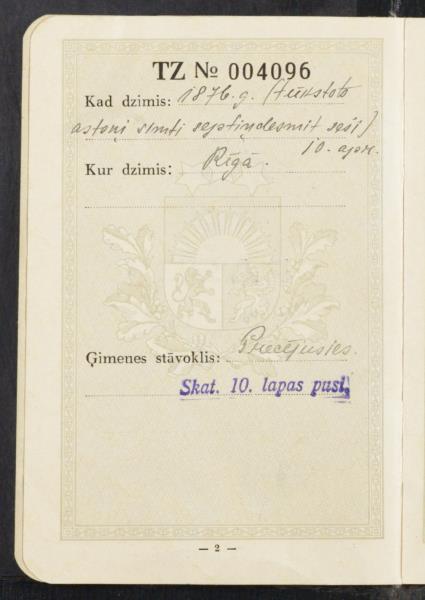 TZ № 004096
Kad dzimis: 1876.g. (tūkstots
astoņi simti septiņdesmit seši)
10. apr.
Kur dzimis: Rīgā.
Ģimenes stāvoklis: Precējusies.
Skat. 10. lapas pusi.
— 2 —